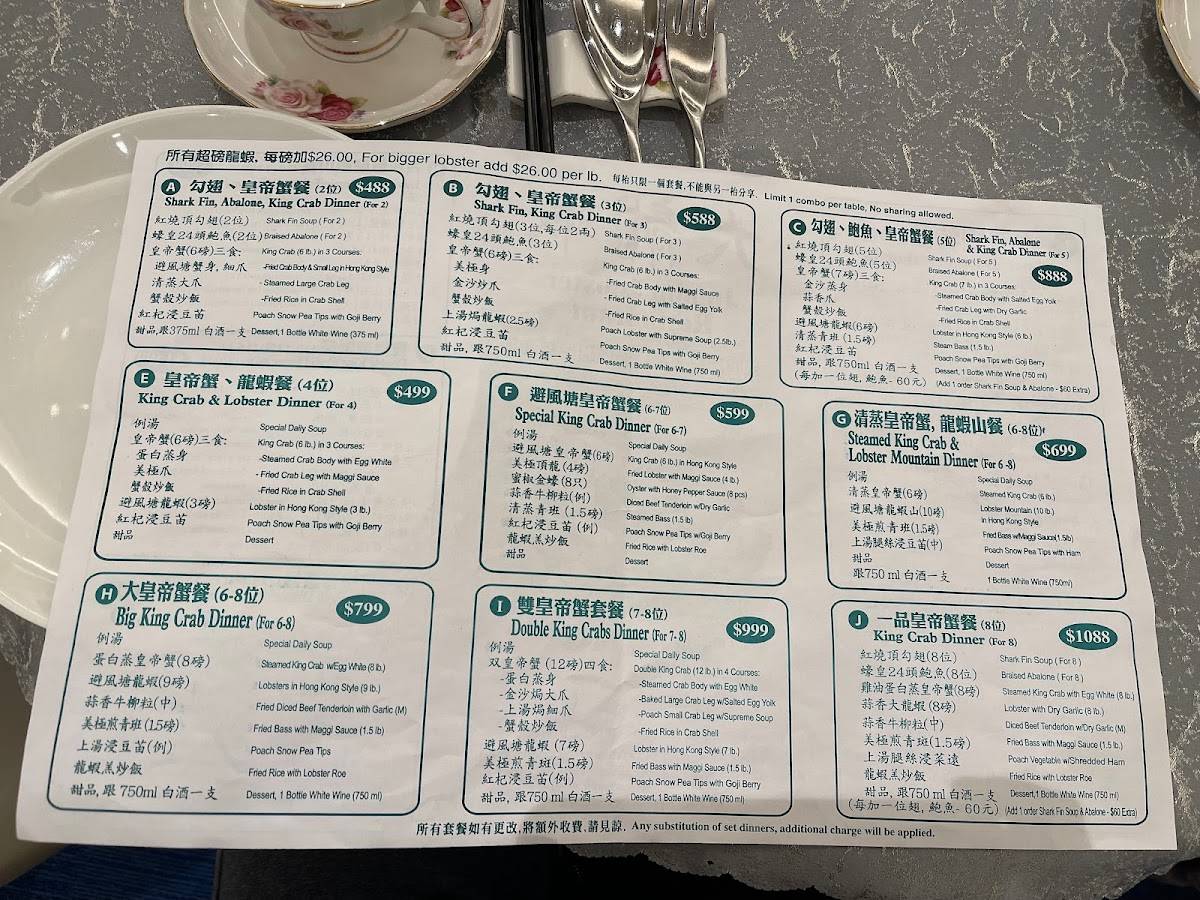 所有超磅龍蝦, 每磅加$26.00, For bigger lobster add $26.00 per lb. 每枱只限一個套餐,不能與另一枱分享. Limit 1 combo per table, No sharing allowed.
A 勾翅、皇帝蟹餐 (2位) $488
Shark Fin, Abalone, King Crab Dinner (For 2)
紅燒頂勾翅(2位) Shark Fin Soup ( For 2 )
蠔皇24頭鮑魚(2位) Braised Abalone ( For 2 )
皇帝蟹(6磅)三食: King Crab (6 lb.) in 3 Courses:
避風塘蟹身, 細爪 -Fried Crab Body & Small Leg in Hong Kong Style
清蒸大爪 - Steamed Large Crab Leg
蟹殼炒飯 -Fried Rice in Crab Shell
紅杞浸豆苗 Poach Snow Pea Tips with Goji Berry
甜品,跟375ml 白酒一支 Dessert, 1 Bottle White Wine (375 ml)
B 勾翅、皇帝蟹餐 (3位) $588
Shark Fin, King Crab Dinner (For 3)
紅燒頂勾翅(3位,每位2兩) Shark Fin Soup ( For 3 )
蠔皇24頭鮑魚(3位) Braised Abalone ( For 3 )
皇帝蟹(6磅)三食: King Crab (6 lb.) in 3 Courses:
美極身 -Fried Crab Body with Maggi Sauce
金沙炒爪 -Fried Crab Leg with Salted Egg Yolk
蟹殼炒飯 -Fried Rice in Crab Shell
上湯焗龍蝦(2.5磅) Poach Lobster with Supreme Soup (2.5lb.)
紅杞浸豆苗 Poach Snow Pea Tips with Goji Berry
甜品, 跟750ml 白酒一支 Dessert, 1 Bottle White Wine (750 ml)
C 勾翅、鮑魚、皇帝蟹餐 (5位) Shark Fin, Abalone
& King Crab Dinner (For 5) $888
紅燒頂勾翅(5位) Shark Fin Soup ( For 5 )
蠔皇24頭鮑魚(5位) Braised Abalone ( For 5 )
皇帝蟹(7磅)三食: King Crab (7 lb.) in 3 Courses:
金沙蒸身 -Steamed Crab Body with Salted Egg Yolk
蒜香爪 -Fried Crab Leg with Dry Garlic
蟹殼炒飯 -Fried Rice in Crab Shell
避風塘龍蝦(6磅) Lobster in Hong Kong Style (6 lb.)
清蒸青班 (1.5磅) Steam Bass (1.5 lb.)
紅杞浸豆苗 Poach Snow Pea Tips with Goji Berry
甜品, 跟750ml 白酒一支 Dessert, 1 Bottle White Wine (750 ml)
(每加一位翅, 鮑魚- 60元) (Add 1 order Shark Fin Soup & Abalone - $60 Extra)
E 皇帝蟹、龍蝦餐 (4位) $499
King Crab & Lobster Dinner (For 4)
例湯 Special Daily Soup
皇帝蟹(6磅)三食: King Crab (6 lb.) in 3 Courses:
蛋白蒸身 -Steamed Crab Body with Egg White
美極爪 -Fried Crab Leg with Maggi Sauce
蟹殼炒飯 -Fried Rice in Crab Shell
避風塘龍蝦(3磅) Lobster in Hong Kong Style (3 lb.)
紅杞浸豆苗 Poach Snow Pea Tips with Goji Berry
甜品 Dessert
F 避風塘皇帝蟹餐 (6-7位) $599
Special King Crab Dinner (For 6-7)
例湯 Special Daily Soup
避風塘皇帝蟹(6磅) King Crab (6 lb.) in Hong Kong Style
美極頂龍 (4磅) Fried Lobster with Maggi Sauce (4 lb.)
蜜椒金蠔 (8只) Oyster with Honey Pepper Sauce (8 pcs)
蒜香牛柳粒(例) Diced Beef Tenderloin w/Dry Garlic
清蒸青班 (1.5磅) Steamed Bass (1.5 lb)
紅杞浸豆苗 (例) Poach Snow Pea Tips w/Goji Berry
龍蝦羔炒飯 Fried Rice with Lobster Roe
甜品 Dessert
G 清蒸皇帝蟹, 龍蝦山餐 (6-8位) $699
Steamed King Crab &
Lobster Mountain Dinner (For 6 -8)
例湯 Special Daily Soup
清蒸皇帝蟹(6磅) Steamed King Crab (6 lb.)
避風塘龍蝦山(10磅) Lobster Mountain (10 lb.)
in Hong Kong Style
美極煎青班(1.5磅) Fried Bass w/Maggi Sauce(1.5lb)
上湯腿絲浸豆苗(中) Poach Snow Pea Tips with Ham
甜品 Dessert
跟750 ml 白酒一支 1 Bottle White Wine (750ml)
H 大皇帝蟹餐 (6-8位) $799
Big King Crab Dinner (For 6-8)
例湯 Special Daily Soup
蛋白蒸皇帝蟹(8磅) Steamed King Crab w/Egg White (8 lb.)
避風塘龍蝦(9磅) Lobsters in Hong Kong Style (9 lb.)
蒜香牛柳粒(中) Fried Diced Beef Tenderloin with Garlic (M)
美極煎青班(1.5磅) Fried Bass with Maggi Sauce (1.5 lb)
上湯浸豆苗(例) Poach Snow Pea Tips
龍蝦羔炒飯 Fried Rice with Lobster Roe
甜品, 跟 750ml 白酒一支 Dessert, 1 Bottle White Wine (750 ml)
I 雙皇帝蟹套餐 (7-8位) $999
Double King Crabs Dinner (For 7- 8)
例湯 Special Daily Soup
双皇帝蟹 (12磅)四食: Double King Crab (12 lb.) in 4 Courses:
-蛋白蒸身 -Steamed Crab Body with Egg White
-金沙焗大爪 -Baked Large Crab Leg w/Salted Egg Yolk
-上湯焗細爪 -Poach Small Crab Leg w/Supreme Soup
-蟹殼炒飯 -Fried Rice in Crab Shell
避風塘龍蝦 (7磅) Lobster in Hong Kong Style (7 lb.)
美極煎青班(1.5磅) Fried Bass with Maggi Sauce (1.5 lb.)
紅杞浸豆苗(例) Poach Snow Pea Tips with Goji Berry
甜品, 跟750 ml 白酒一支 Dessert, 1 Bottle White Wine (750 ml)
J 一品皇帝蟹餐 (8位) $1088
King Crab Dinner (For 8)
紅燒頂勾翅(8位) Shark Fin Soup ( For 8 )
蠔皇24頭鮑魚(8位) Braised Abalone ( For 8 )
雞油蛋白蒸皇帝蟹(8磅) Steamed King Crab with Egg White (8 lb.)
蒜香大龍蝦(8磅) Lobster with Dry Garlic (8 lb.)
蒜香牛柳粒(中) Diced Beef Tenderloin w/Dry Garlic (M)
美極煎青斑(1.5磅) Fried Bass with Maggi Sauce (1.5 lb.)
上湯腿絲浸菜遠 Poach Vegetable w/Shredded Ham
龍蝦羔炒飯 Fried Rice with Lobster Roe
甜品, 跟750 ml 白酒一支 Dessert,1 Bottle White Wine (750 ml)
(每加一位翅, 鮑魚- 60元) (Add 1 order Shark Fin Soup & Abalone - $60 Extra)
所有套餐如有更改,將額外收費,請見諒. Any substitution of set dinners, additional charge will be applied.